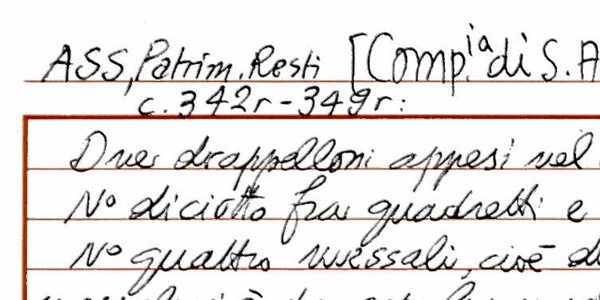 ASS, Patrim. Resti [Comp.ia di S. A
c. 342r - 349r:
Due drappelloni appesi nel
N° diciotto fra quadretti e
N° quattro messali, cioè d